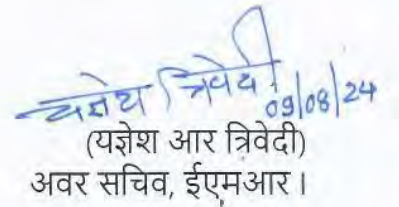 यज्ञेश त्रिवेदी
09/08/24
(यज्ञेश आर त्रिवेदी)
अवर सचिव, ईएमआर ।